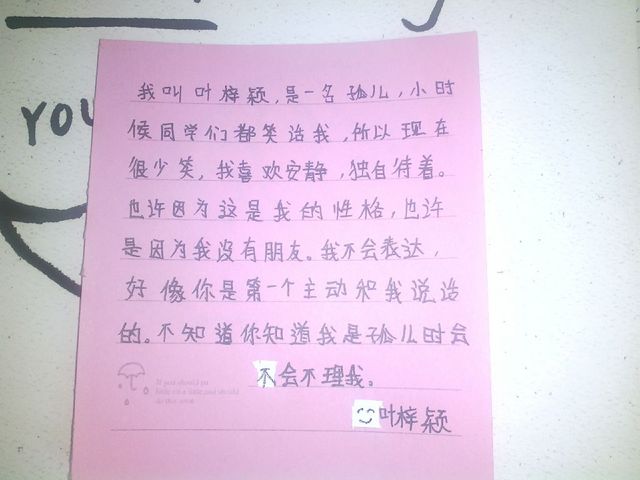 you
我叫叶梓颖,是一名孤儿,小时
候同学们都笑话我,所以现在
很少笑,我喜欢安静,独自待着。
也许因为这是我的性格,也许
是因为我没有朋友。我不会表达,
好像你是第一个主动和我说话
的。不知道你知道我是孤儿时会
不会不理我。
叶梓颖